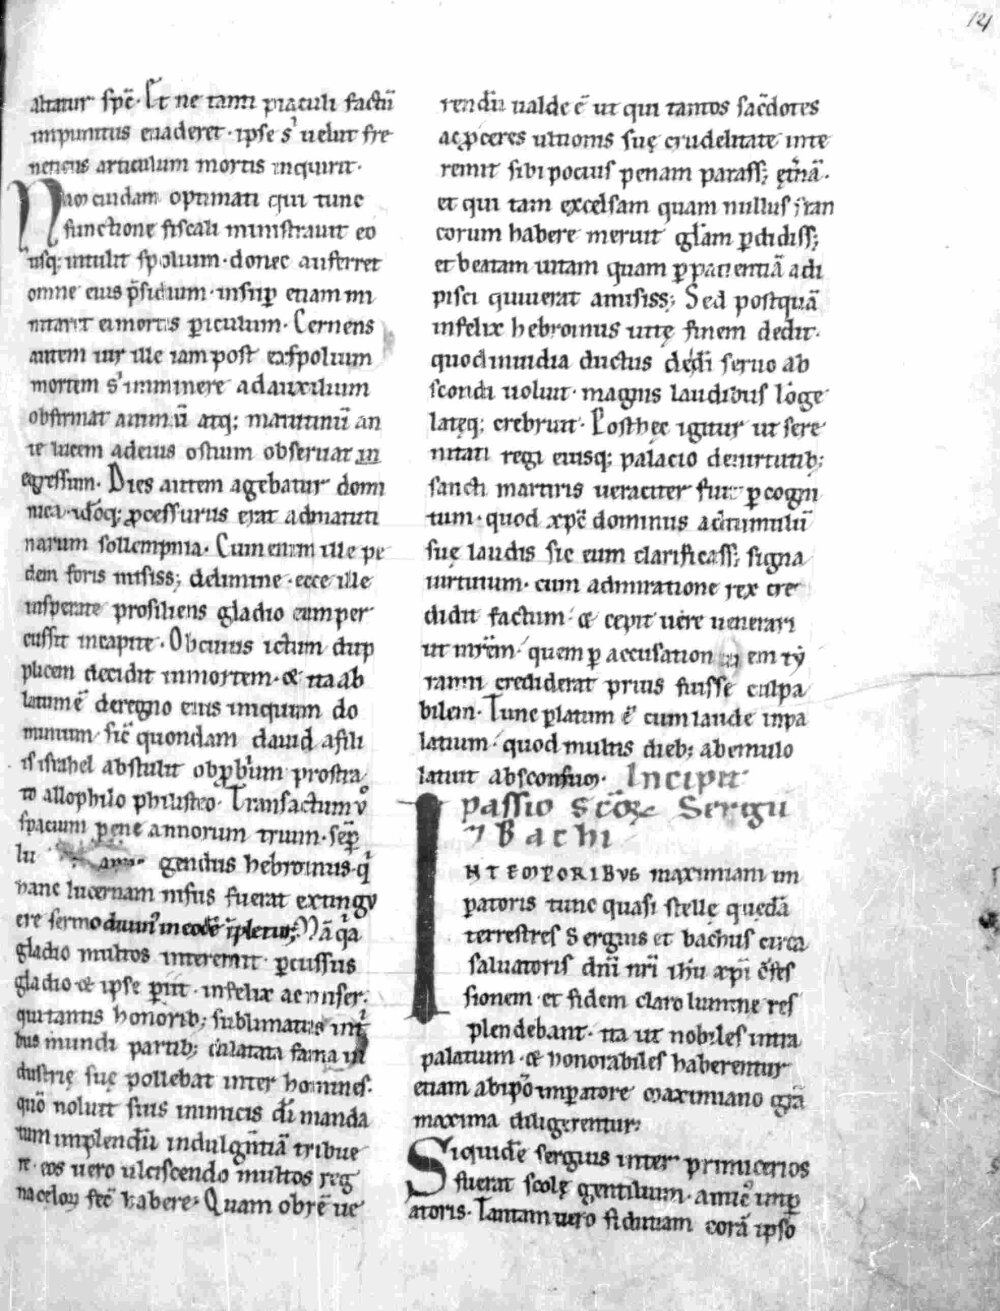 121
altatur spē. Et ne tanti piaculi factū
impunitus euaderet. ipse s' uelut fre
neticus articulum mortis inquirit.
Nam cuidam optimati qui tunc
functione fiscali ministrauit eo
usq; intulit spolium. donec auferret
omne eius p̄sidium. insup̄ etiam mi
nitarit ei mortis periculum. Cernens
autem uir ille iam post exspolium
mortem s' imminere ad auxilium
obfirmat animū atq; matutinū an
te lucem ad eius ostium obseruat in
egressum. Dies autem agebatur domi
nica. idōq; ꝓcessurus erat ad matuti
narum sollempnia. Cum enim ille pe
dem foris misiss; de limine. ecce ille
insperate prosiliens gladio eum per
cussit in capite. Ob cuius ictum dup
plicem decidit in mortem. & ita ab
latum ē de regno eius iniquum do
minium. sic̄ quondam dauid a fili
is israhel abstulit obp̄brium prostra
to allophilo philisteo. Transactum ū
spacium pene annorum trium. sep̄
lu gendus hebroinus. q'
hanc lucernam nisus fuerat extingu
ere sermo diuin' in eo dē īpletur; Nā qa
gladio multos interemit. p̄cussus
gladio & ipse p̄iit. infelix ac miser.
qui tantis honorib; sublimatus in
bus mundi partib; dilatata fama in
dustrię suę pollebat inter homines.
quō noluit suis inimicis dī manda
tum implendū indulgentiā tribue
re. eos uero ulciscendo multos reg
na celoꝝ fec̄ habere. Quam ob rē ue
rendū ualde ē ut qui tantos sac̄dotes
ac ꝓceres ultionis suę crudelitate inte
remit sibi pocius penam parass; et̄nā.
et qui tam excelsam quam nullus fran
corum habere meruit gl̄am p̄didiss;
et beatam uitam quam p̄ patientiā adi
pisci quiuerat amisiss; Sed postquā
infelix hebroinus uitę finem dedit.
quod inuidia ductus de dī seruo ab
scondi uoluit. magnis laudibus longe
lateq; crebruit. Post hęc igitur ut sere
nitati regi eiusq; palacio de uirtutib;
sancti martiris ueraciter fuit p̄cogni
tum. quod xp̄c dominus ad cumulū
suę laudis sic eum clarificass; signa
uirtutum. cum admiratione rex cre
didit factum. & cepit uere uenerari
ut mr̄em. quem p̄ accusation em ty
ranni crediderat prius fuisse culpa
bilem. Tunc p̄latum ē cum laude in pa
latium. quod multis dieb; ab emulo
latuit absconsum. Incipit
passio sc̄oꝝ Sergii
⁊ Bachi
IN TEMPORIBUS maximiani im
p̄atoris tunc quasi stellę quedā
terrestres Sergius et bachus circa
saluatoris dn̄i nr̄i ihu xp̄i cōfes
sionem et fidem claro lumine res
plendebant. ita ut nobiles intra
palatium. & honorabiles haberentur
etiam ab ipō imp̄atore maximiano gr̄a
maxima diligerentur;
Siquidē sergius inter primicerios
fuerat scolę gentilium. amic' imp̄
atoris. Tantam uero fiduciam corā ipso